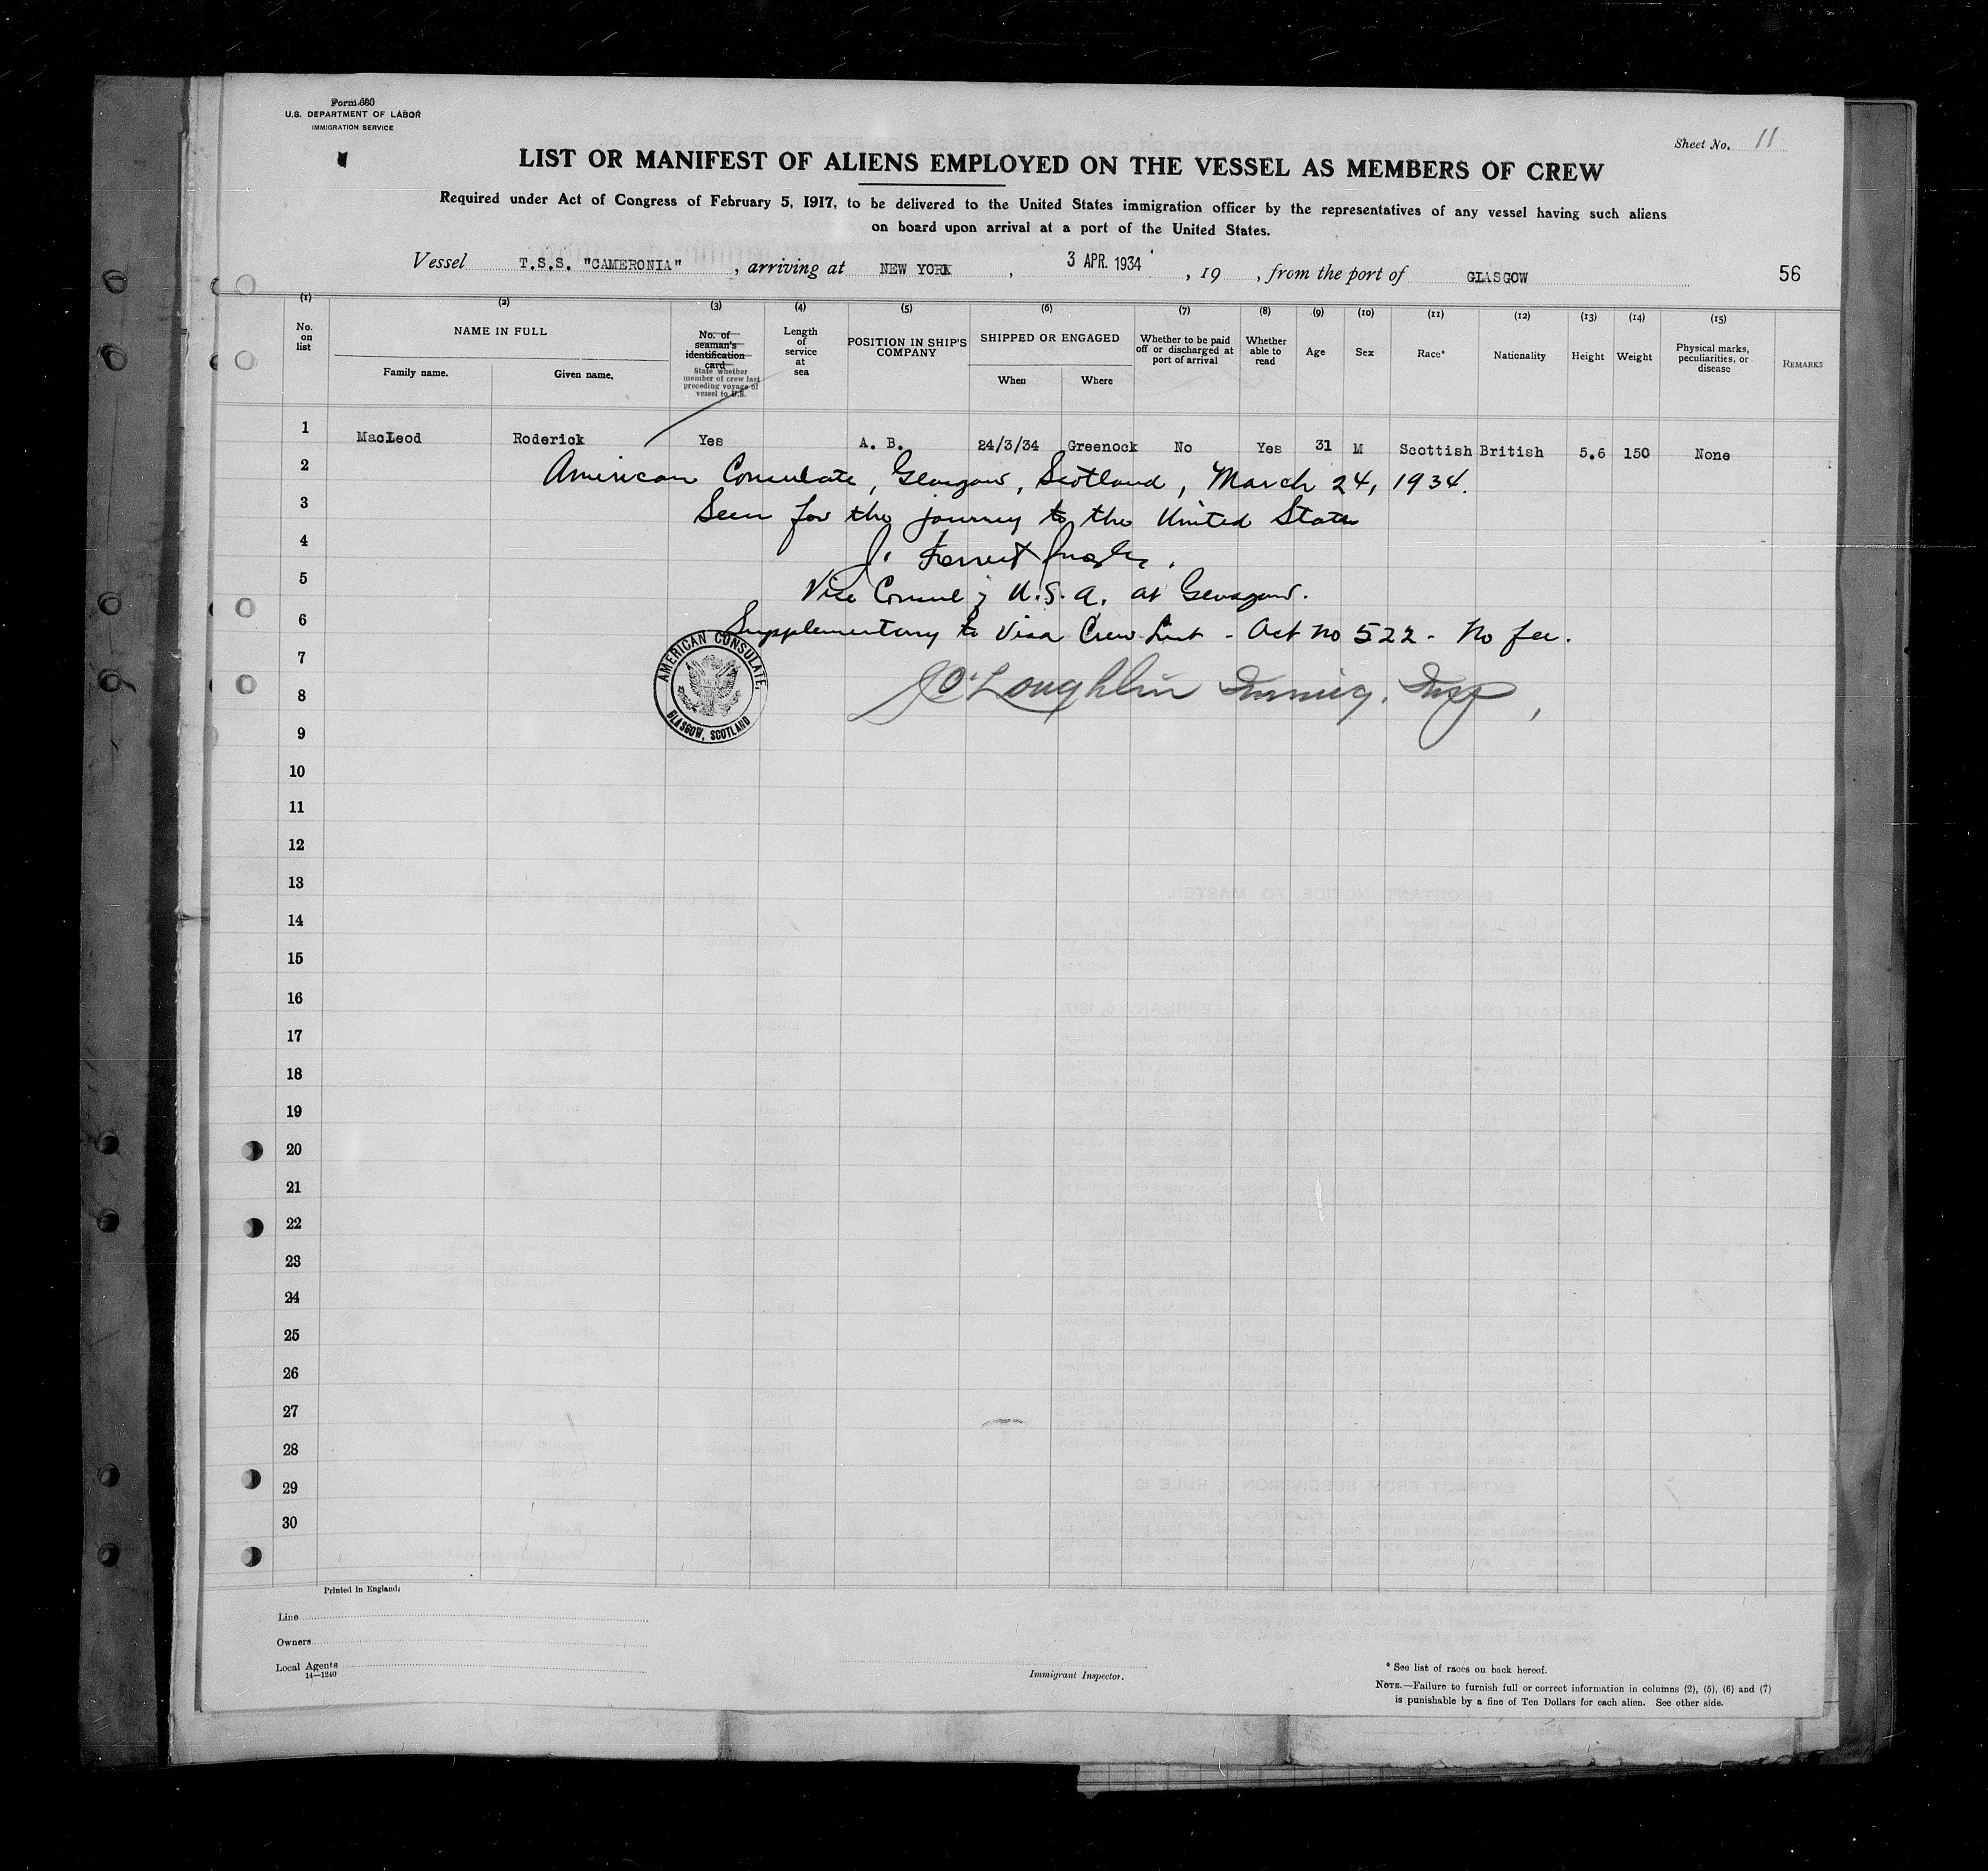 Form 680
U.S. DEPARTMENT OF LABOR
IMMIGRATION SERVICE
Sheet No. 11
LIST OR MANIFEST OF ALIENS EMPLOYED ON THE VESSEL AS MEMBERS OF CREW
Required under Act of Congress of February 5, 1917, to be delivered to the United States immigration officer by the representatives of any vessel having such aliens
on board upon arrival at a port of the United States.
Vessel T.S.S. "CAMERONIA", arriving at NEW YORK, 3 APR. 1934, 19 , from the port of GLASGOW 56
(1) (2) (3) (4) (5) (6) (7) (8) (9) (10) (11) (12) (13) (14) (15)
No. on list
NAME IN FULL
Family name. Given name.
No. of seaman's identification card
State whether member of crew last preceding voyage of vessel to U.S.
Length of service at sea
POSITION IN SHIP'S COMPANY
SHIPPED OR ENGAGED
When Where
Whether to be paid off or discharged at port of arrival
Whether able to read
Age
Sex
Race*
Nationality
Height
Weight
Physical marks, peculiarities, or disease
REMARKS
1 MacLeod Roderick Yes A. B. 24/3/34 Greenock No Yes 31 M Scottish British 5.6 150 None
2 American Consulate, Glasgow, Scotland, March 24, 1934.
3 Seen for the journey to the United States
4 J. Forrest
5 Vice Consul of U.S.A. at Glasgow.
6 Supplementary to Visa Crew List - Act no 522 - No fee.
AMERICAN CONSULATE.
GLASGOW, SCOTLAND
7
8 J O'Loughlin Immig. Insp,
9
10
11
12
13
14
15
16
17
18
19
20
21
22
23
24
25
26
27
28
29
30
Printed in England.
Line
Owners
Local Agents
14—1240
Immigrant Inspector.
* See list of races on back hereof.
NOTE.—Failure to furnish full or correct information in columns (2), (5), (6) and (7)
is punishable by a fine of Ten Dollars for each alien. See other side.